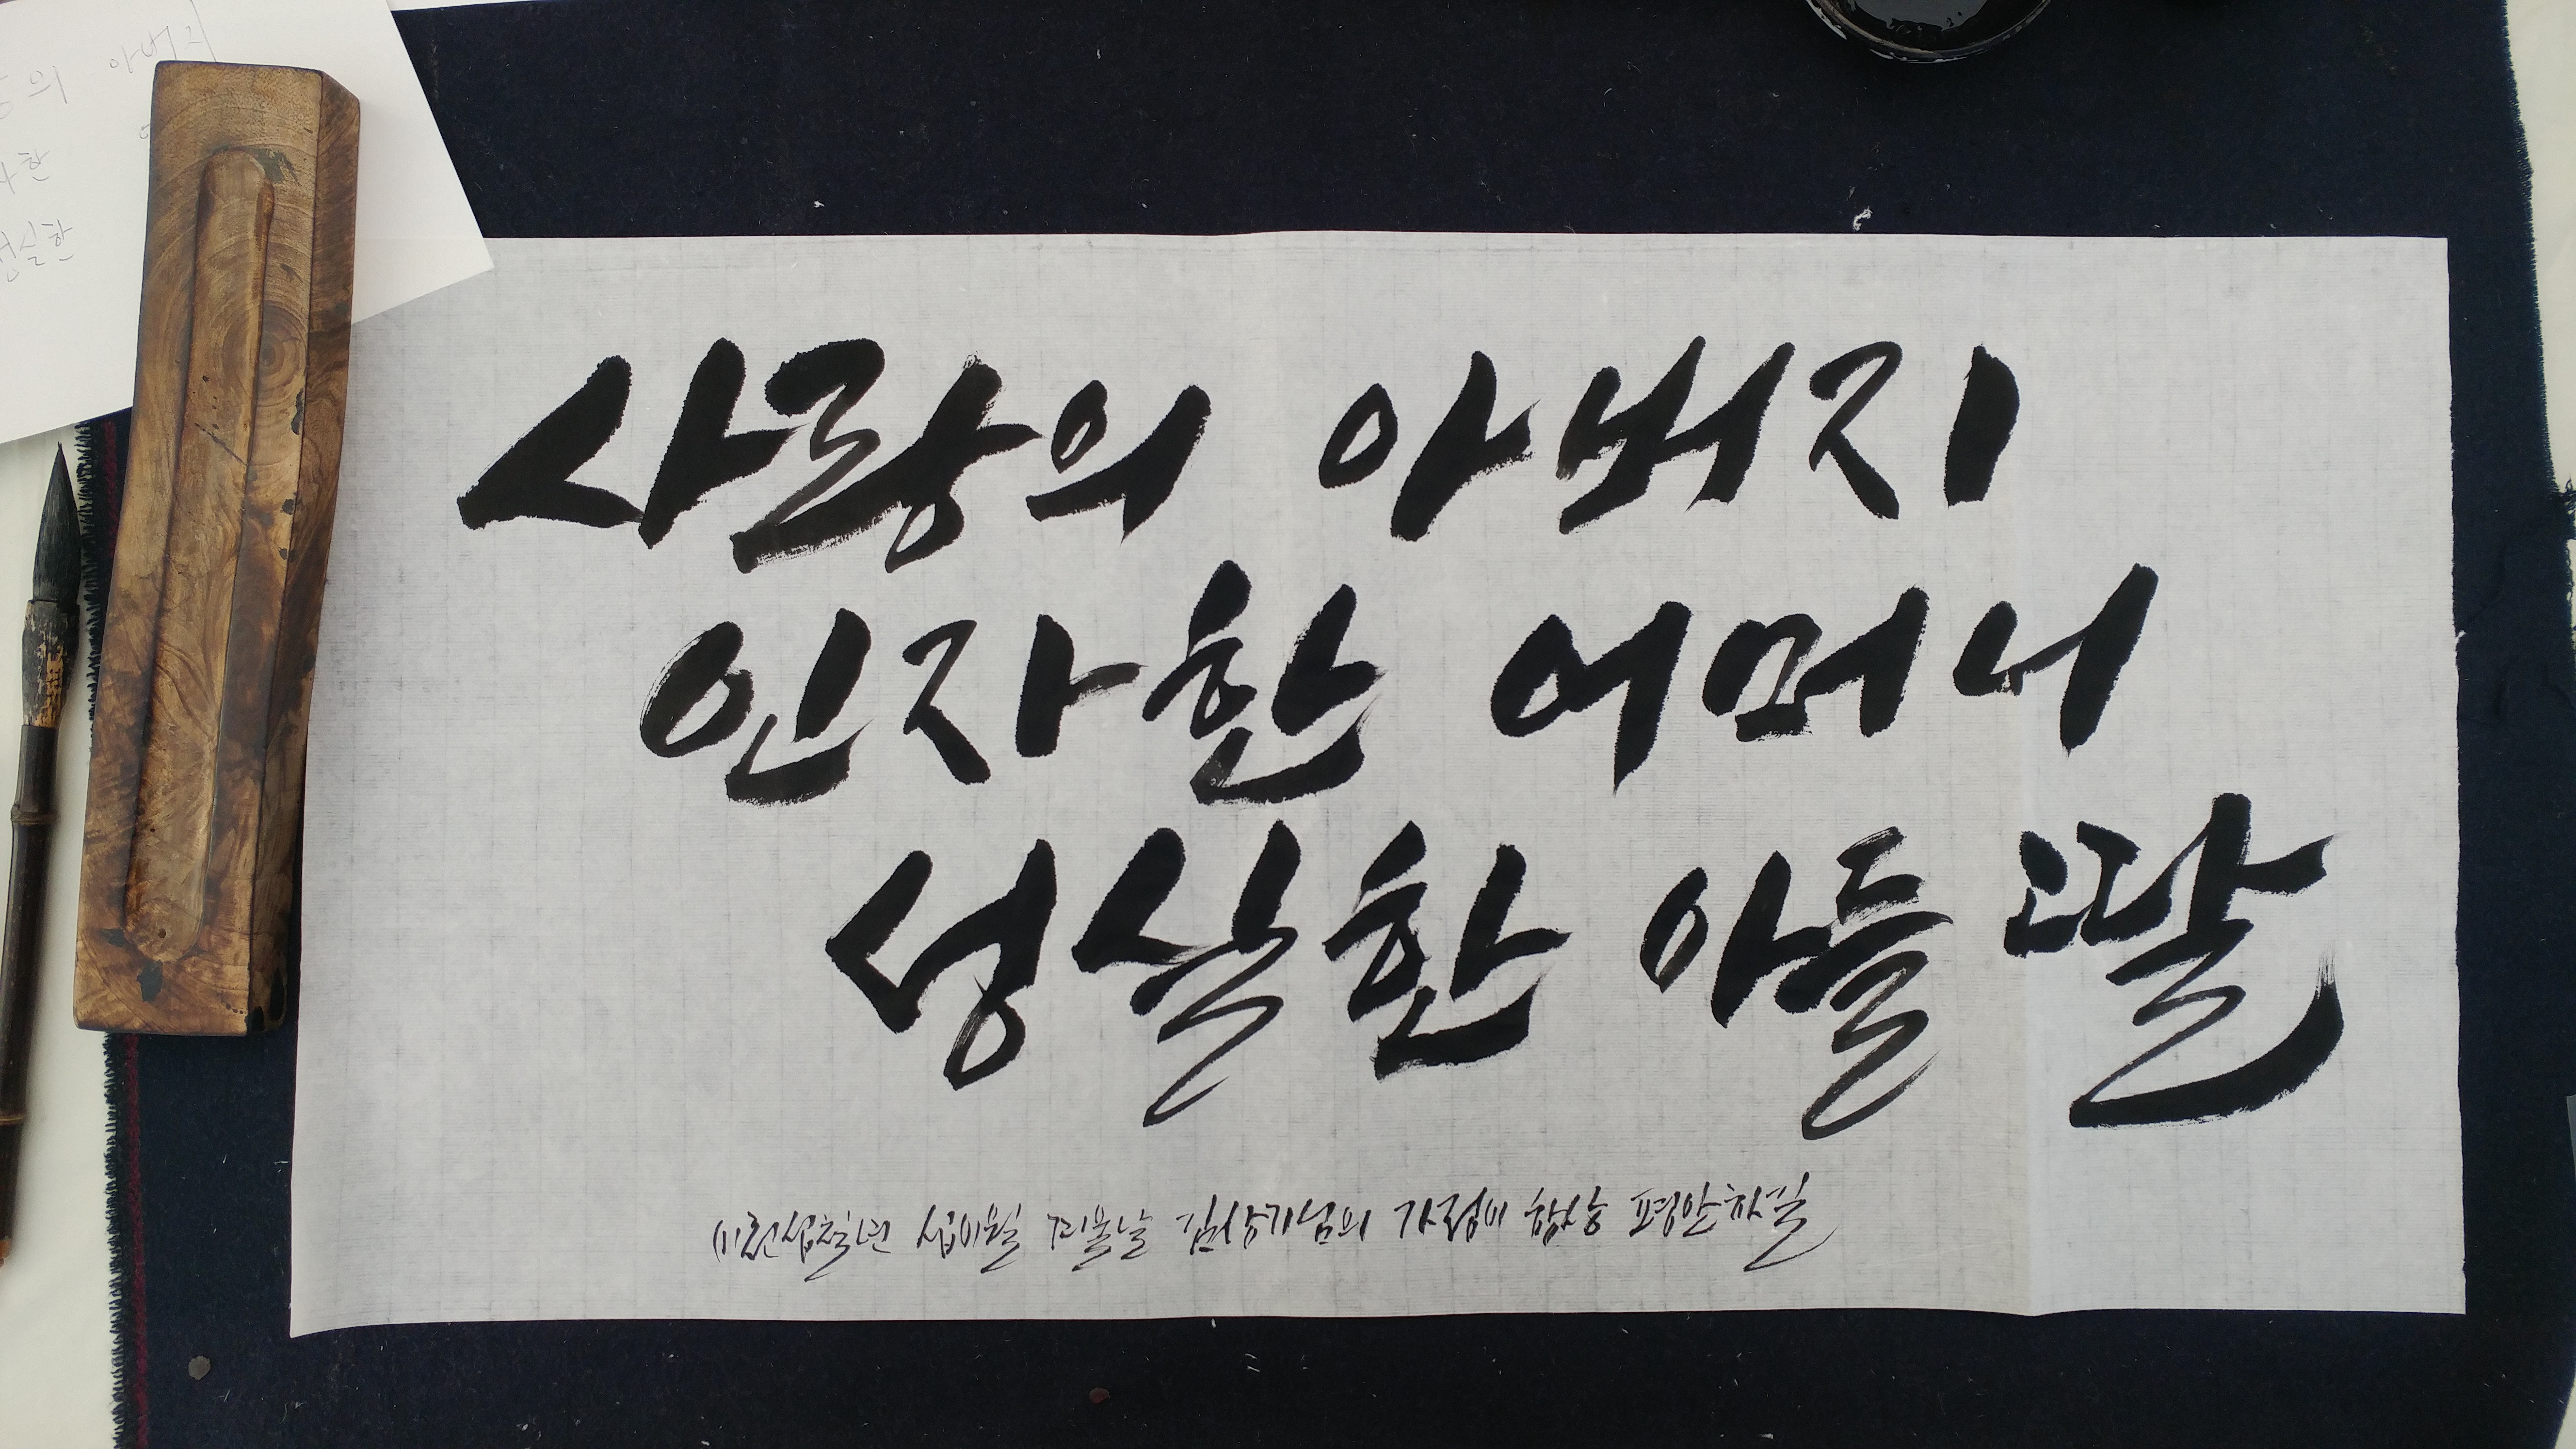 아버지
의
한
성실한
사랑의 아버지
인자한 어머니
성실한 아들 딸
이천십칠년 십이월 겨울날 김상기님의 가정이 항상 평안하길